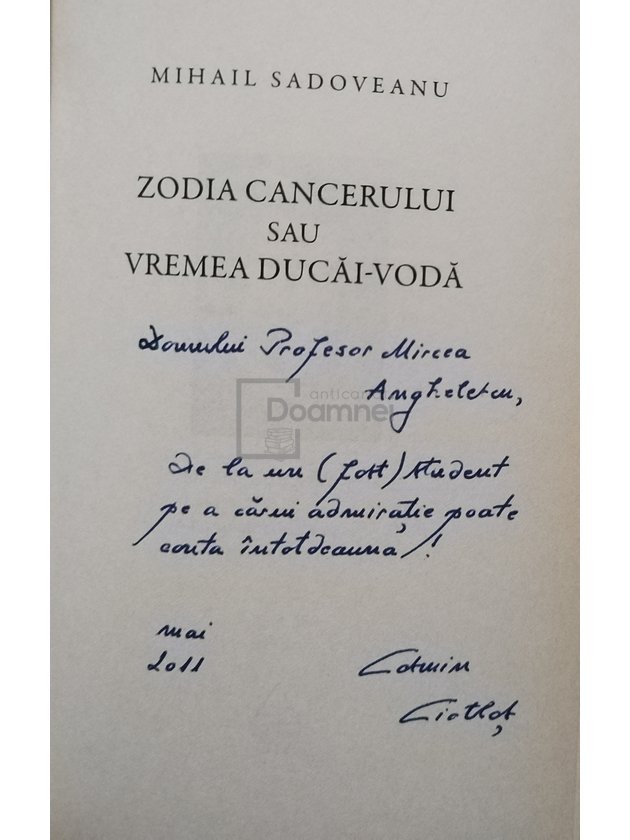 MIHAIL SADOVEANU
ZODIA CANCERULUI
SAU
VREMEA DUCĂI-VODĂ
Domnului Profesor Mircea
Anghelescu,
anticariat
Doamnei
De la un (fost) student
pe a cărui admirație poate
conta întotdeauna!
mai
2011
Cosmin
Ciotloș